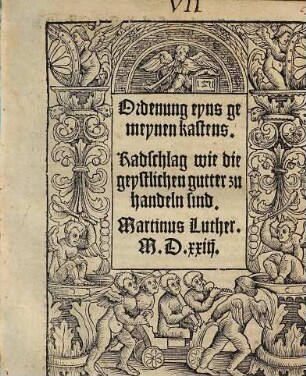 VII
Ordenung eyns ge
meynen kastens.
Radschlag wie die
geystlichen gutter zu
handeln sind.
Martinus Luther.
M.D.xxiij.